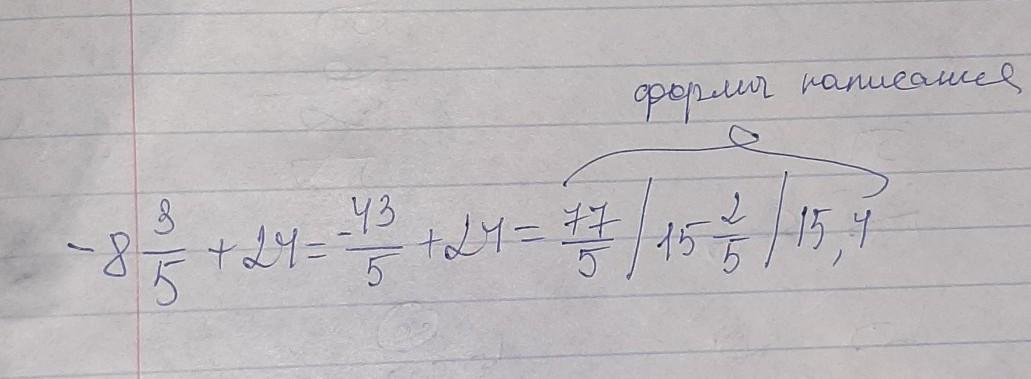 формы написания
-8 3/5 + 24 = -43/5 + 24 = 77/5 / 15 2/5 / 15,4